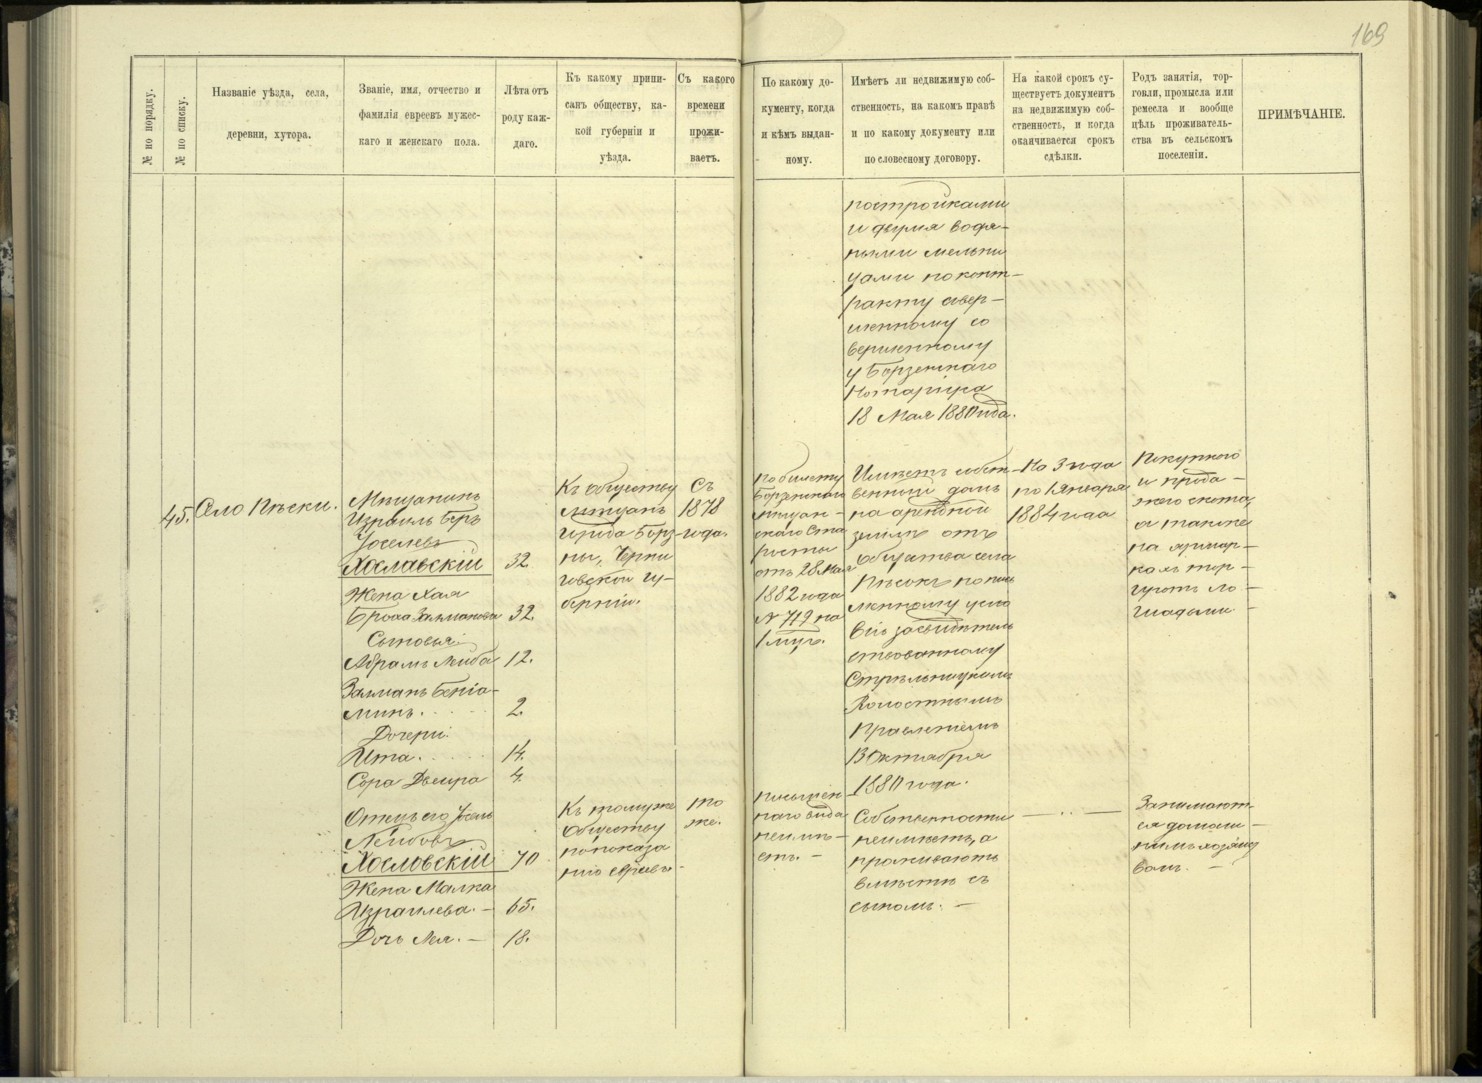 169
№ по порядку.
№ по списку.
Названіе уѣзда, села,
деревни, хутора.
Званіе, имя, отчество и
фамилія евреевъ мужес-
каго и женскаго пола.
Лѣта отъ
роду каж-
даго.
Къ какому припи-
санъ обществу, ка-
кой губерніи и
уѣзда.
Съ какого
времени
прожи-
ваетъ.
По какому до-
кументу, когда
и кѣмъ выдан-
ному.
Имѣетъ ли недвижимую соб-
ственность, на какомъ правѣ
и по какому документу или
по словесному договору.
На какой срокъ су-
ществуетъ документъ
на недвижимую соб-
ственность, и когда
оканчивается срокъ
сдѣлки.
Родъ занятія, тор-
говли, промысла или
ремесла и вообще
цѣль проживатель-
ства въ сельском
поселеніи.
ПРИМѢЧАНІЕ.
постройками
и двумя водя-
ными мельни
цами по конт-
ракту
со
вершенному
у Борзенскаго
Нотаріуса
18 Мая 1880 года.
45.
Село Пѣски.
Мѣщанинъ
Израиль Беръ
Іоселевъ
Хославскій
32
Жена Хая
Броха Залманова
32
Сыновья:
Абрамъ Лейба
12.
Залманъ Беніа-
минъ.
2.
Дочери:
Ита.
14.
Сора Двейра
4.
Къ обществу
мѣщанъ
города Борз-
ны, Черни
говской гу-
берніи.
Съ
1878
года
По билету
Борзенскаго
мѣщан-
скаго Ста
росты
отъ 28 Мая
1882 года
№ 719 на
1 годъ.
Имѣетъ собст-
венный домъ
на арендной
землѣ отъ
общества села
Пѣсокъ по пись
менному усло
вію засвидѣтель
ствованному
Волостнымъ
Правленіемъ
13 Октября
1880 года.
На 3 года
по 1 Января
1884 года
Покупкою
и прода-
жею скота,
а также
на ярмар-
кахъ тор-
гуетъ ло-
шадьми
Отецъ его Іосель
Лейбовъ
Хословскій
70
Жена Малка
Израилева. —
65.
Дочь Лея. —
18.
Къ тому же
обществу
по показа
нію евреевъ
то
же.
Письмен-
наго вида
неимѣ-
етъ. —
Собственности
неимѣетъ, а
проживаютъ
вмѣстѣ съ
сыномъ. —
Занимают-
ся домаш-
нимъ хозяйст
вомъ. —